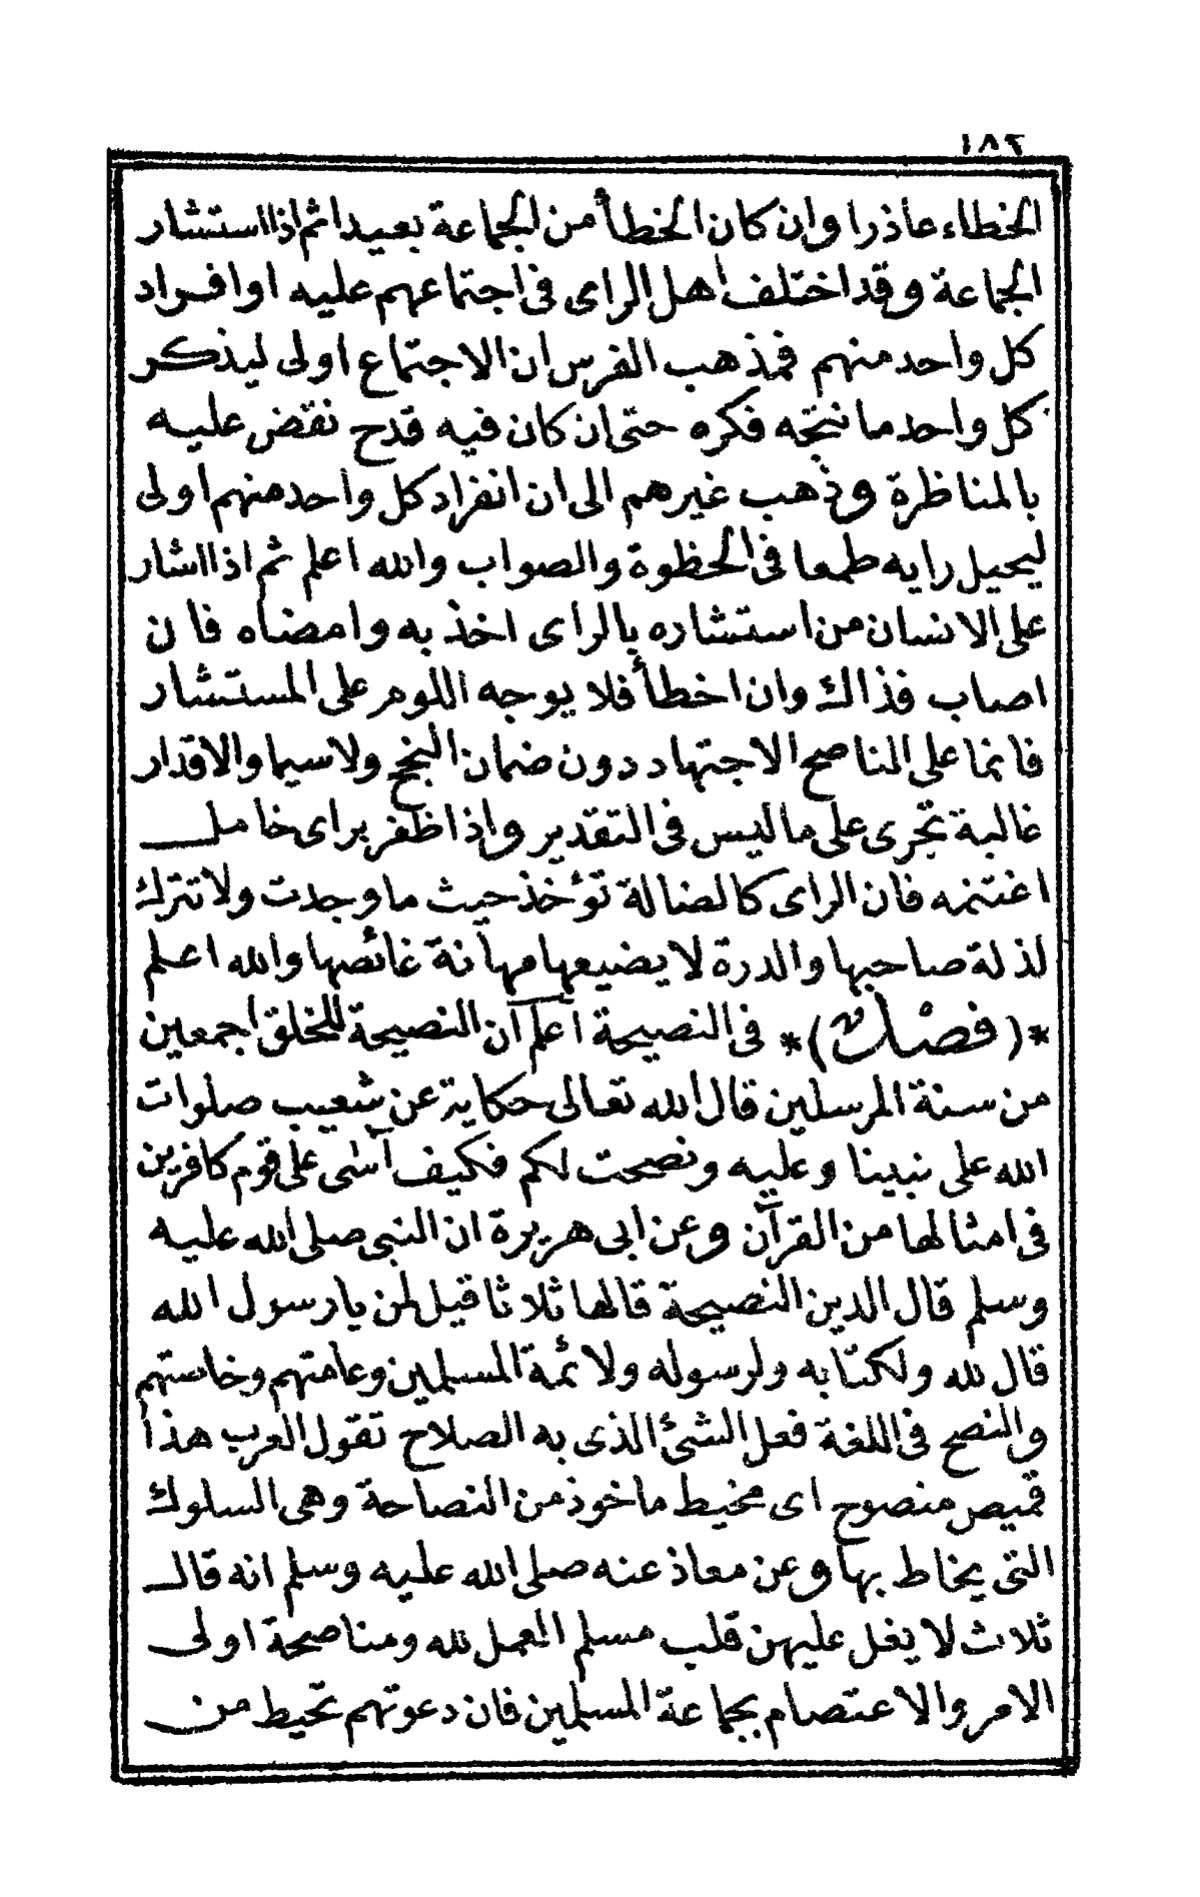 ١٨٢
الخطاء عاذرا وان كان الخطأ من الجماعة بعيدا ثم اذا استشار
الجماعة وقد اختلف اهل الراى فى اجتماعهم عليه اوافراد
كل واحد منهم فمذهب الفرس ان الاجتماع اولى ليذكر
كل واحد ما نتجه فكره حتى ان كان فيه قدح نقض عليه
بالمناظرة وذهب غيرهم الى ان انفراد كل واحد منهم اولى
ليحيل رايه طمعا فى الحظوة والصواب والله اعلم ثم اذا اشار
على الانسان من استشاره بالراى اخذ به وامضاه فان
اصاب فذاك وان اخطأ فلا يوجه اللوم على المستشار
فانما على الناصح الاجتهاد دون ضمان النجح ولاسيما والاقدار
غالبة تجرى على ماليس فى التقدير واذا ظفر براى خامل
اغتنمه فان الراى كالضالة تؤخذ حيث ما وجدت ولا تترك
لذلة صاحبها والدرة لا يضيعها مهانة غائصها والله اعلم
*(فصل)* فى النصيحة اعلم ان النصيحة للخلق اجمعين
من سنة المرسلين قال الله تعالى حكاية عن شعيب صلوات
الله على نبينا وعليه ونصحت لكم فكيف آسى على قوم كافرين
فى امثالها من القرآن وعن ابى هريرة ان النبى صلى الله عليه
وسلم قال الدين النصيحة قالها ثلاثا قيل لمن يا رسول الله
قال لله ولكتابه ولرسوله ولائمة المسلمين وعامتهم وخاصتهم
والنصح فى اللغة فعل الشئ الذى به الصلاح تقول العرب هذا
قميص منصوح اى مخيط ماخوذ من النصاحة وهى السلوك
التى يخاط بها وعن معاذ عنه صلى الله عليه وسلم انه قال
ثلاث لا يغل عليهن قلب مسلم العمل لله ومناصحة اولى
الامر والاعتصام بجماعة المسلمين فان دعوتهم تحيط من